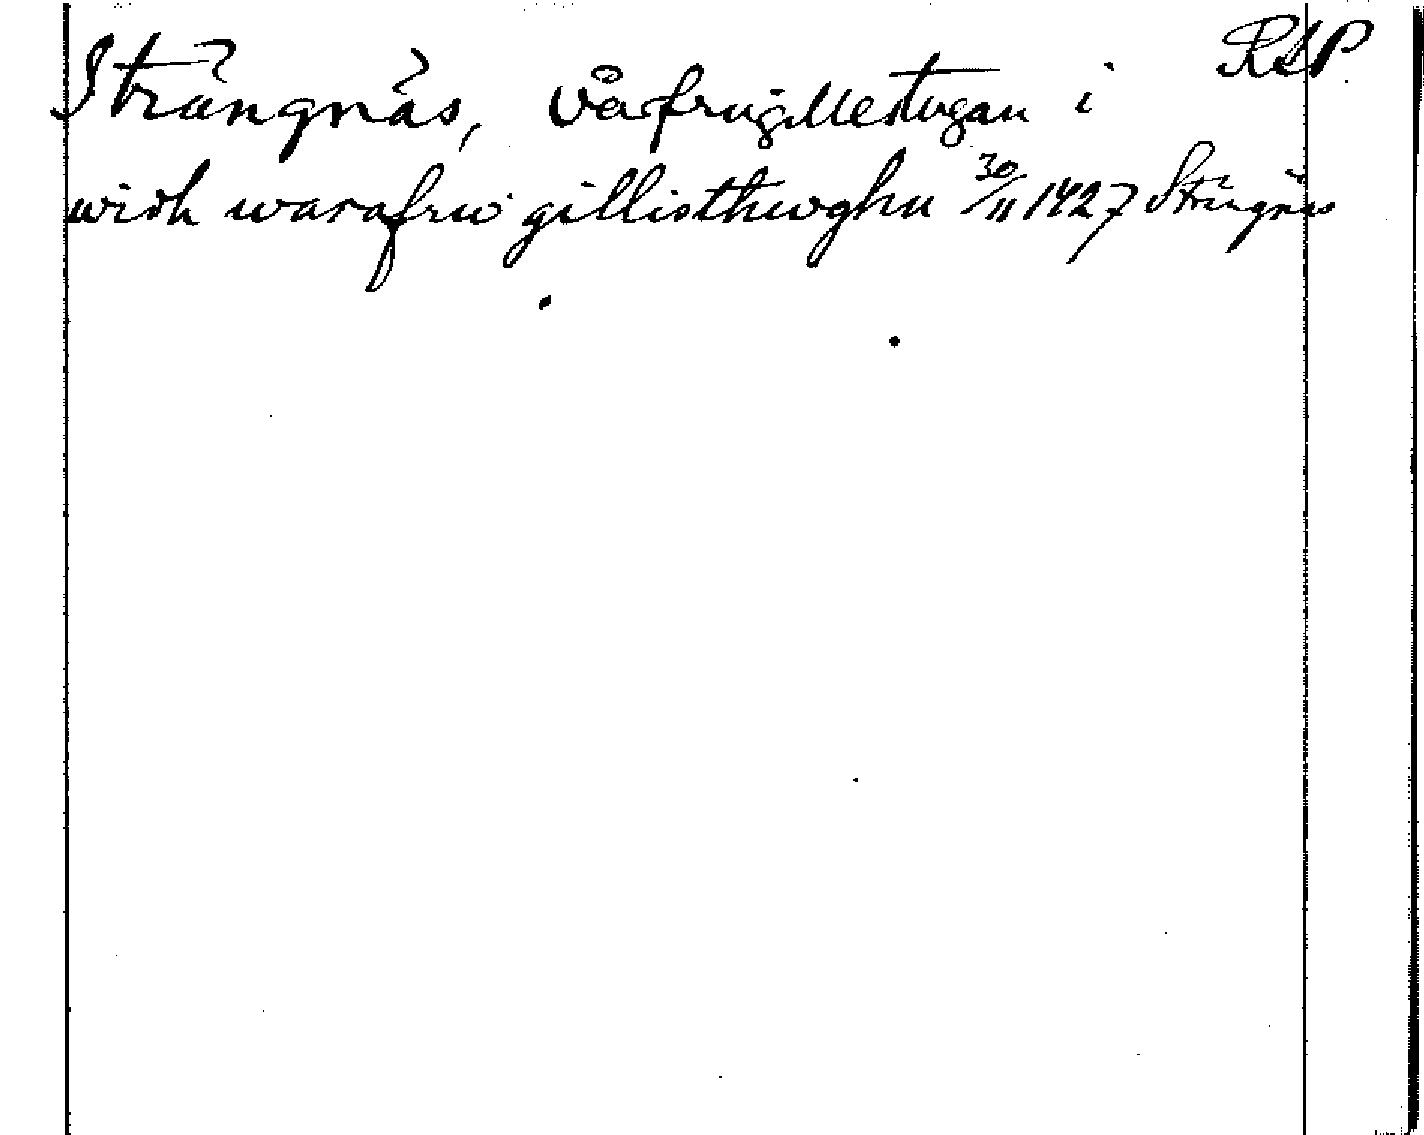 Strängnäs, Vårfrugillestugan i RAP
widh warafrw gillisthwghu 30/11 1427 Strängnäs